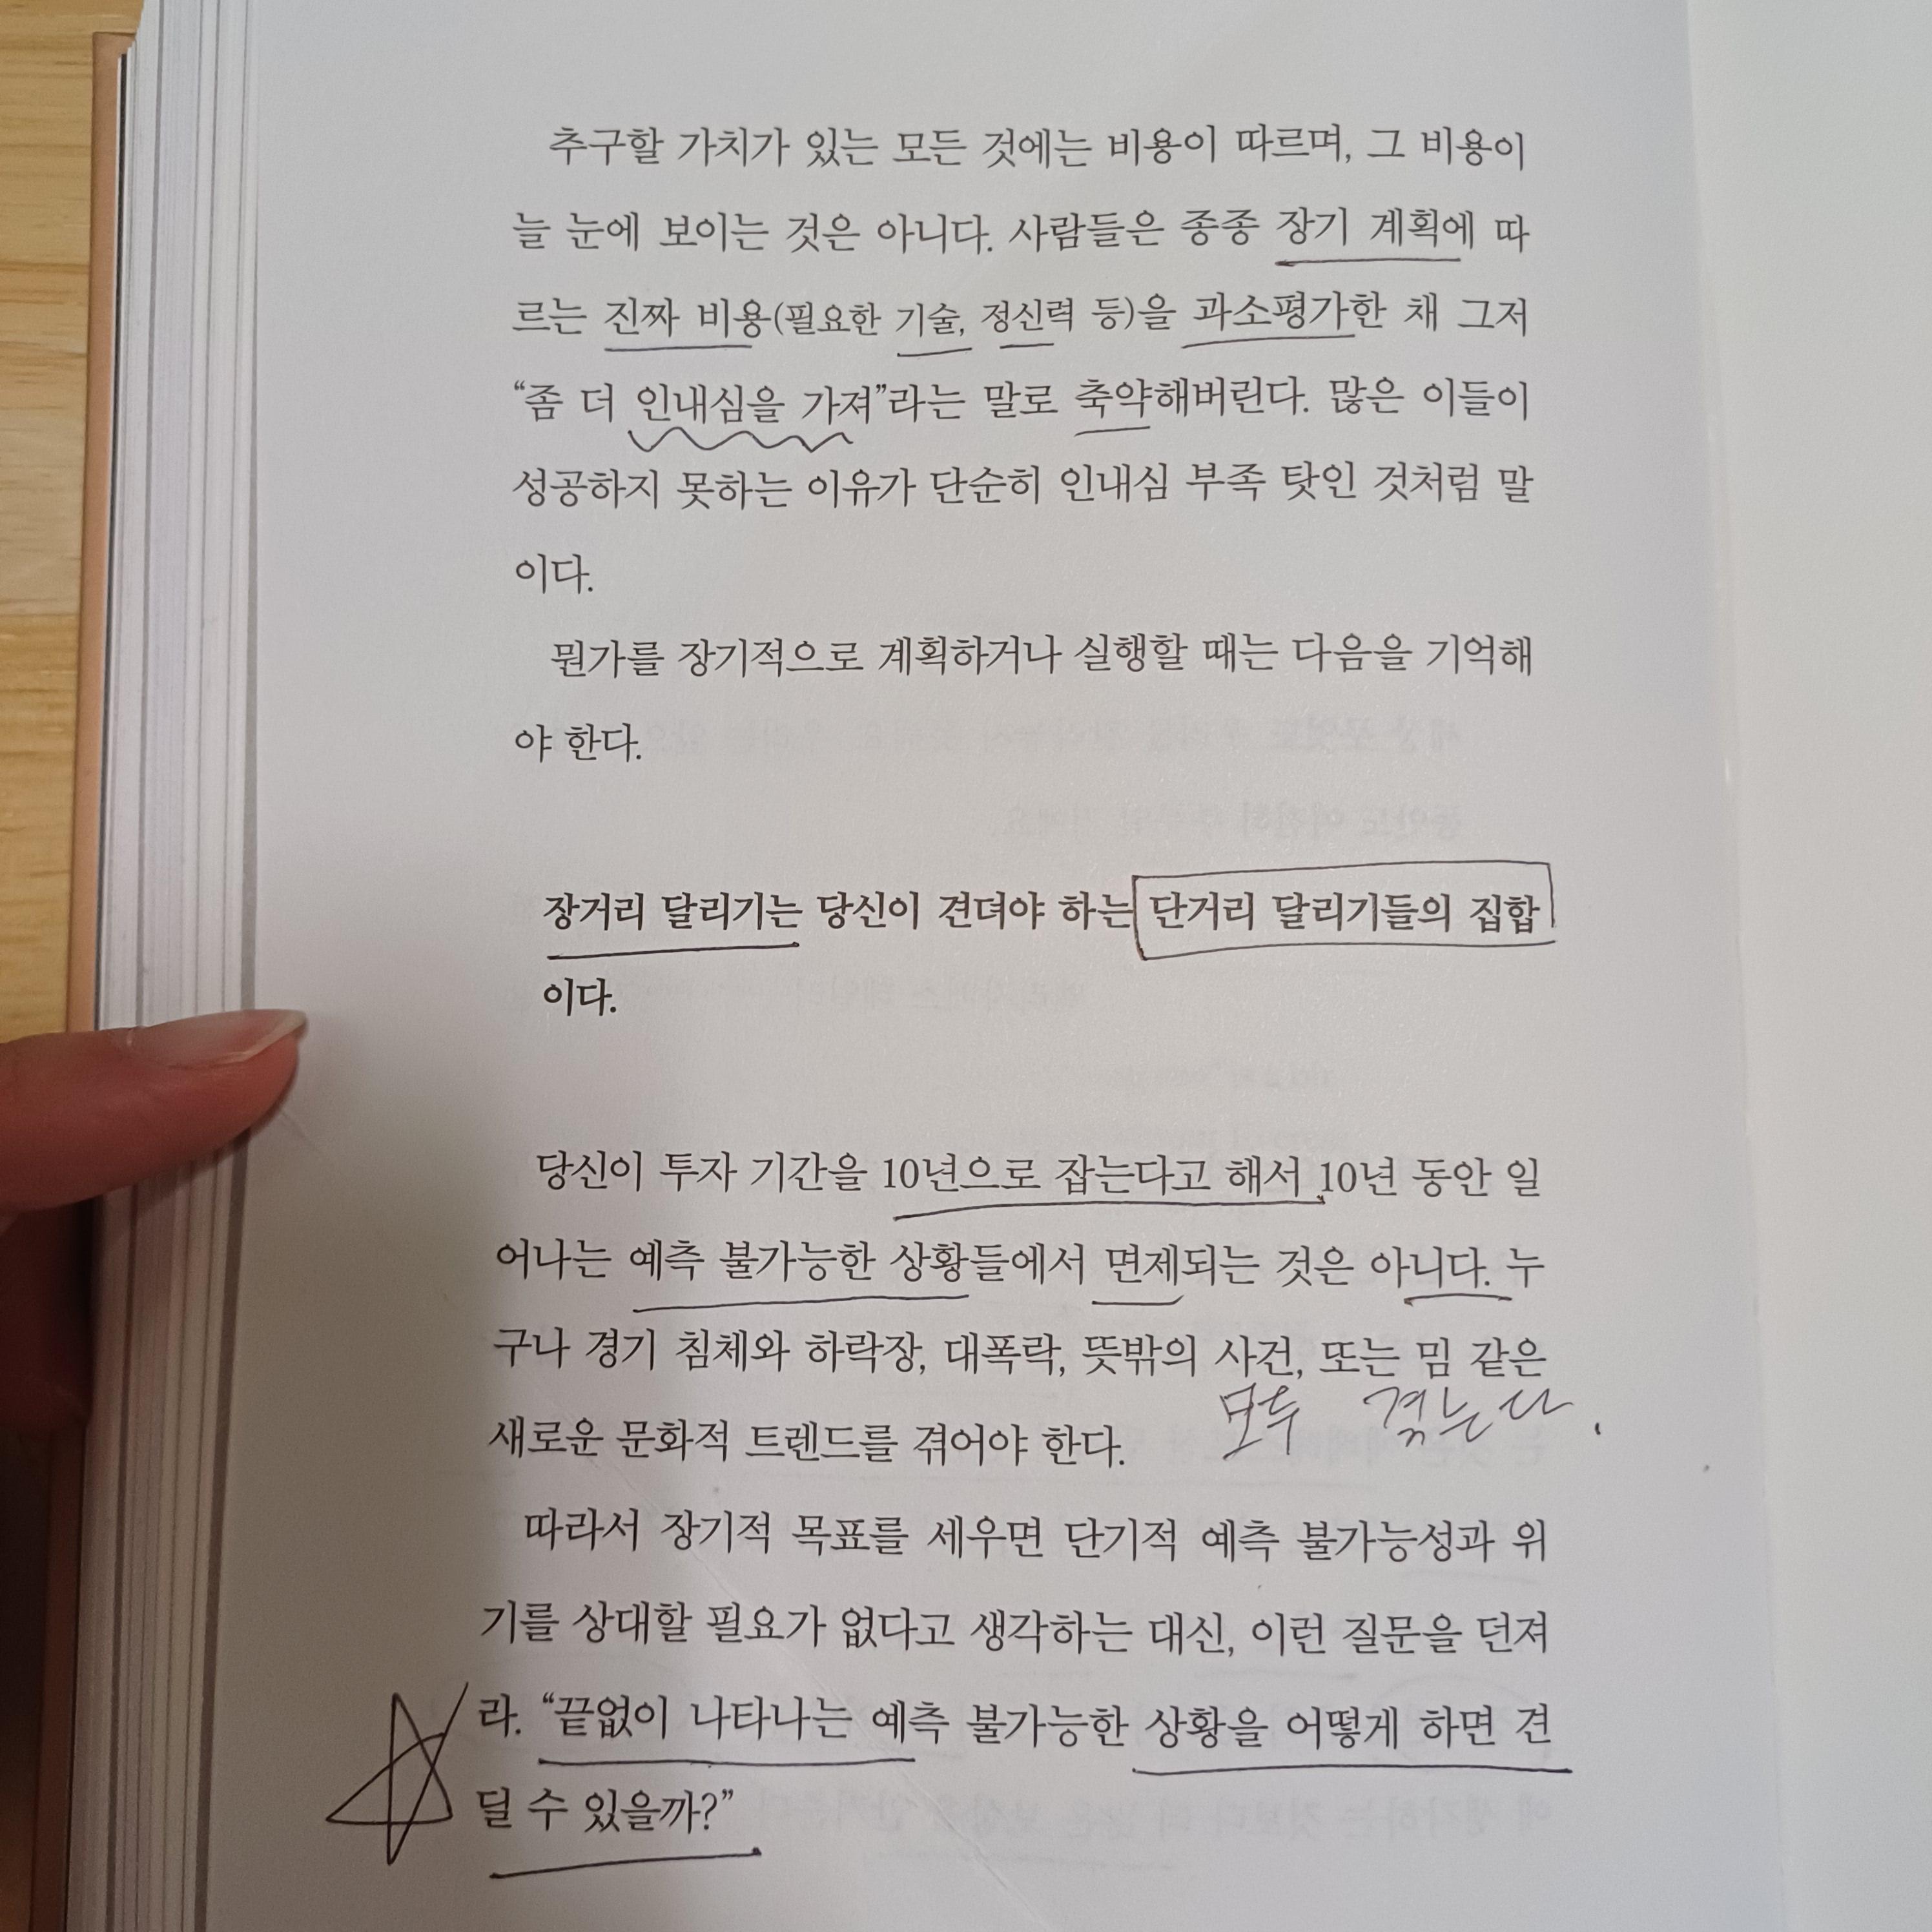 추구할 가치가 있는 모든 것에는 비용이 따르며, 그 비용이
늘 눈에 보이는 것은 아니다. 사람들은 종종 장기 계획에 따
르는 진짜 비용(필요한 기술, 정신력 등)을 과소평가한 채 그저
“좀 더 인내심을 가져”라는 말로 축약해버린다. 많은 이들이
성공하지 못하는 이유가 단순히 인내심 부족 탓인 것처럼 말
이다.
뭔가를 장기적으로 계획하거나 실행할 때는 다음을 기억해
야 한다.
장거리 달리기는 당신이 견뎌야 하는 단거리 달리기들의 집합
이다.
당신이 투자 기간을 10년으로 잡는다고 해서 10년 동안 일
어나는 예측 불가능한 상황들에서 면제되는 것은 아니다. 누
구나 경기 침체와 하락장, 대폭락, 뜻밖의 사건, 또는 밈 같은
새로운 문화적 트렌드를 겪어야 한다.
모두 겪는다.
따라서 장기적 목표를 세우면 단기적 예측 불가능성과 위
기를 상대할 필요가 없다고 생각하는 대신, 이런 질문을 던져
라. “끝없이 나타나는 예측 불가능한 상황을 어떻게 하면 견
딜 수 있을까?”